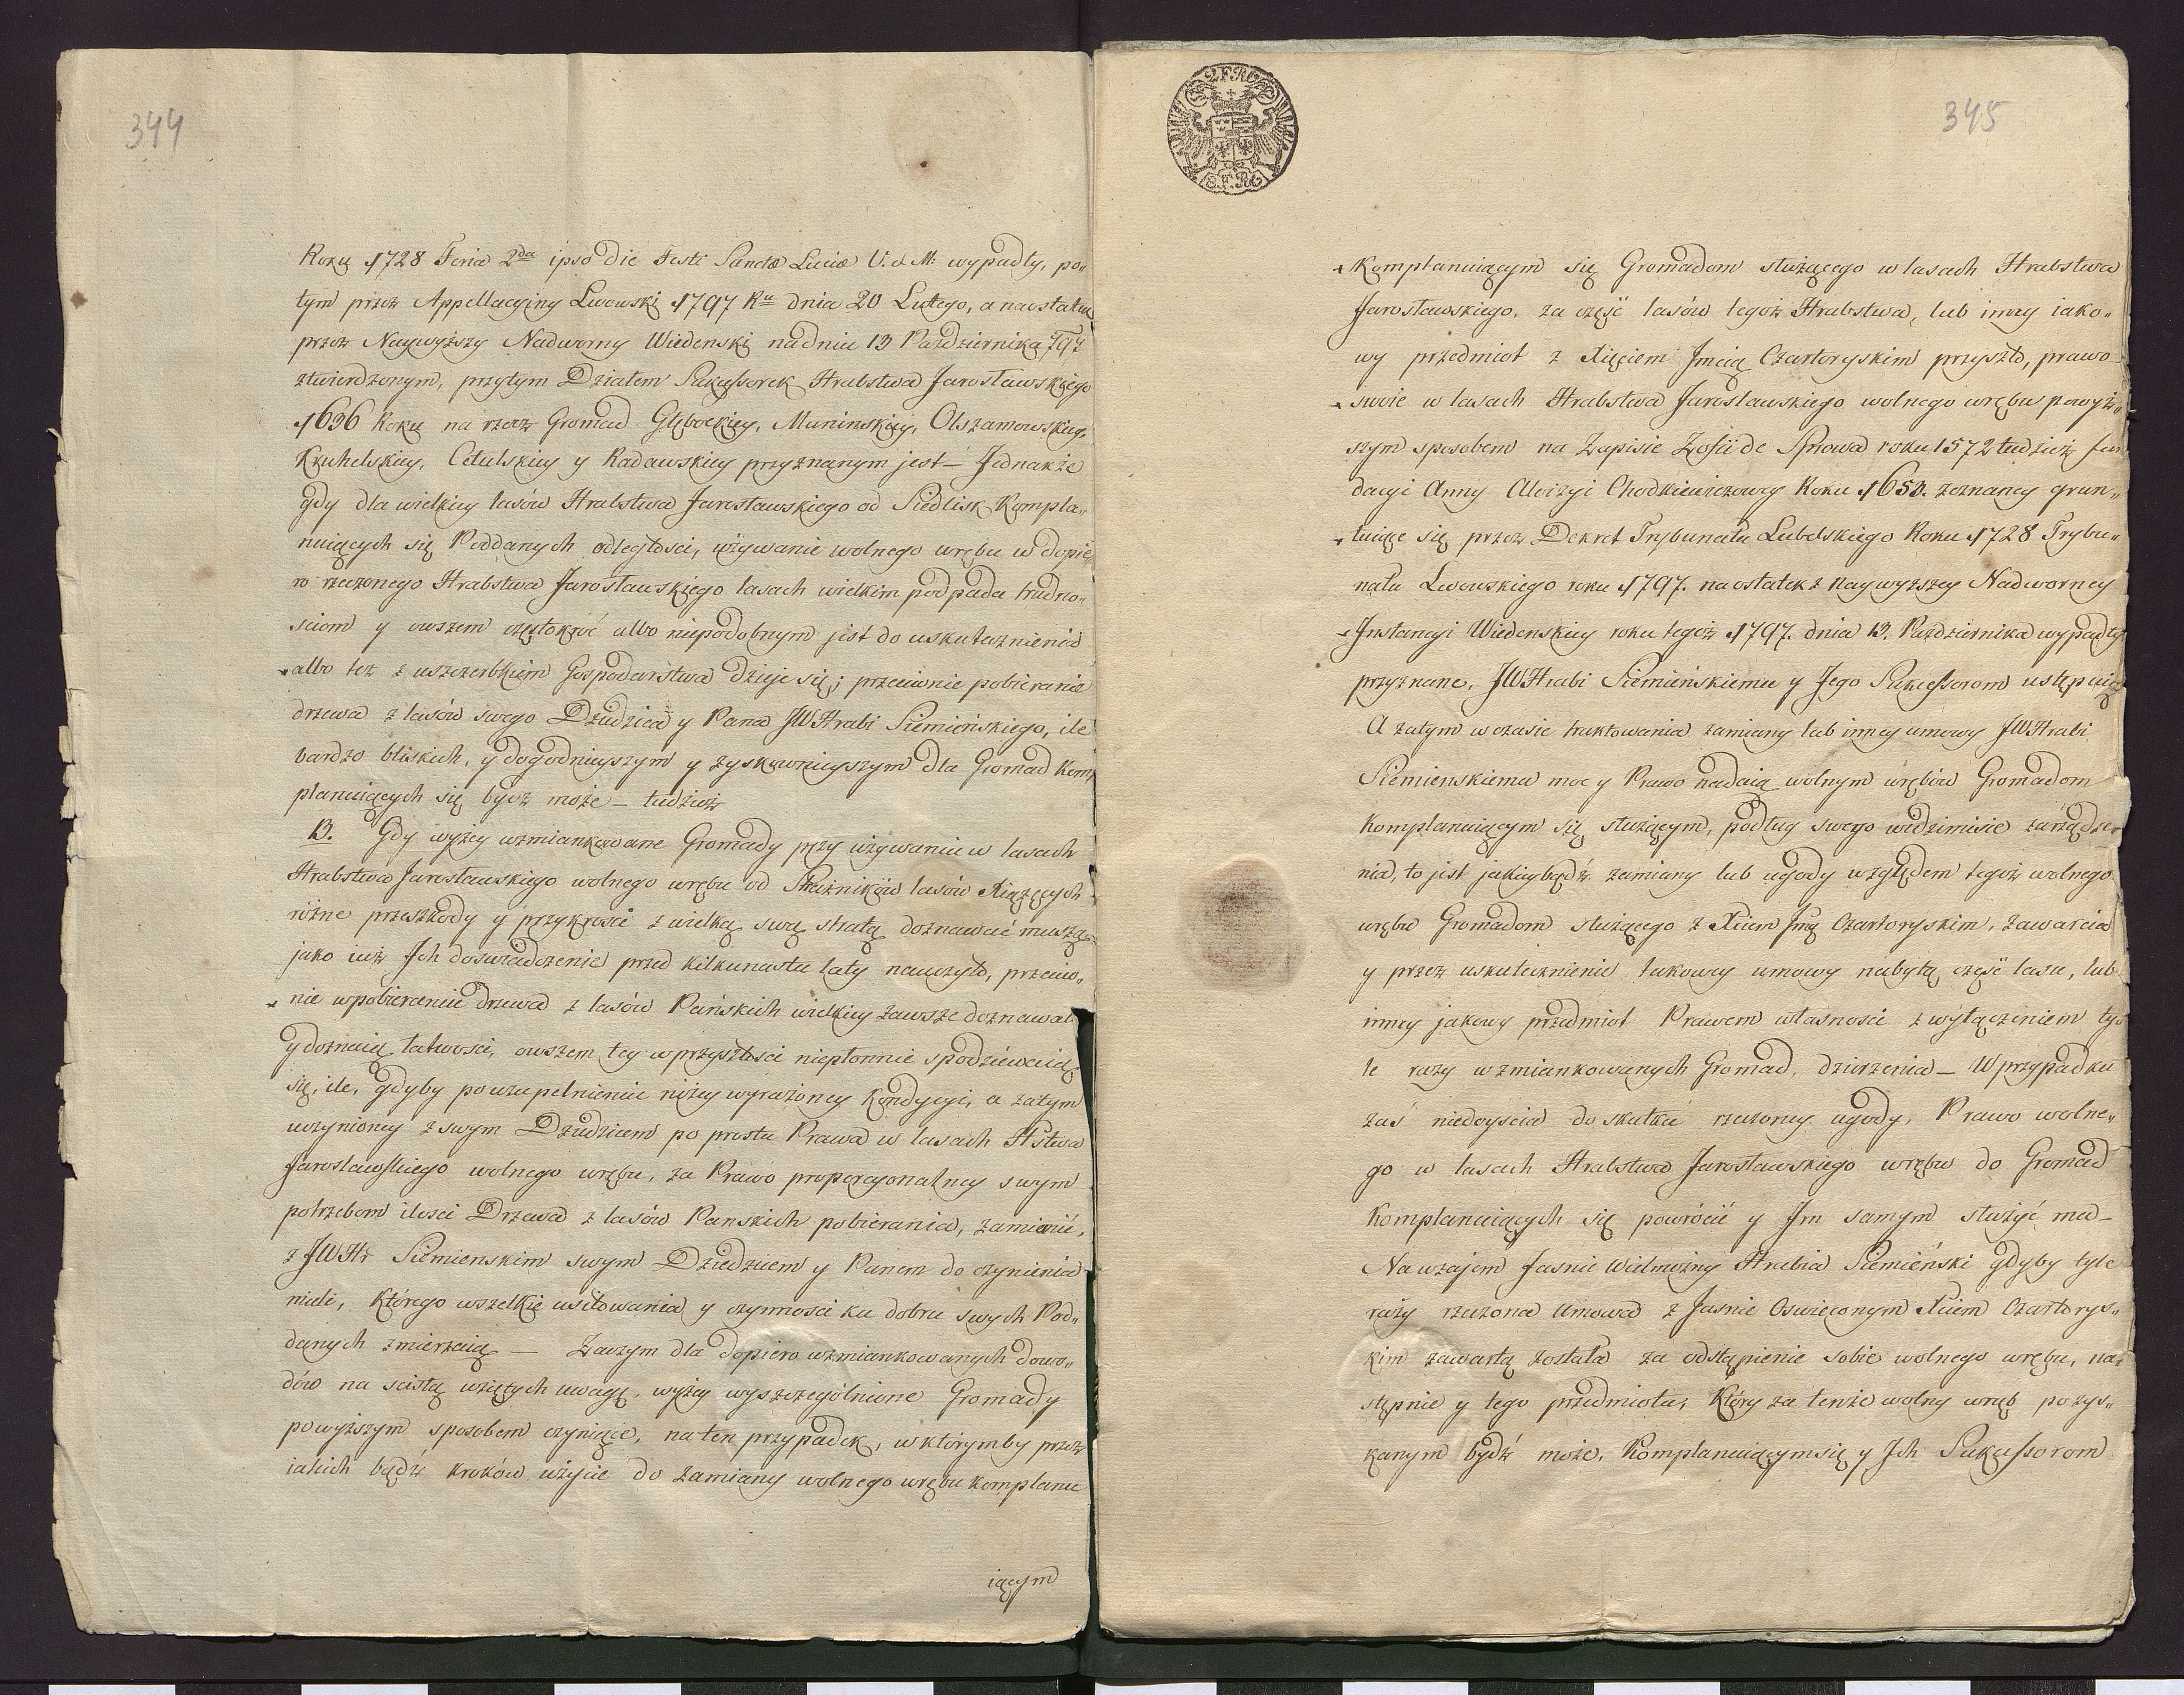 344
Roku 1728 Feria 2da ipso die Festi Sanctæ Luciæ V. & M. wypadły, po„
tym przez Appellacyiny Lwowski 1797 Ru dnia 20 Lutego, a naostatku
przez Naywyższy Nadworny Wiedenski na dniu 13 Października 797
ztwierdzonym, przytym Działem Sukcessorek Hrabstwa Jarosławskiego
1636 Roku na rzecz Gromad Głębockiey, Muninskiey, Olszanowskiey,
Kruhelskiey, Cetulskiey y Radawskiey przyznanym jest — Jednakże
gdy dla wielkiey lasów Hrabstwa Jarosławskiego od Siedlisk Kompla„
nuiących się Poddanych odległosci, używanie wolnego wrębu w dopie
ro rzeczonego Hrabstwa Jarosławskiego lasach wielkim podpada trudno„
sciom y owszem częstokroć albo niepodobnym jest do uskutecznienia
albo też z uszczerbkiem Gospodarstwa dzieje się; przeciwnie pobieranie
drzewa z lasów swego Dziedzica y Pana JW Hrabi Siemieńskiego, ile
bardzo bliskich, y dogodnieyszym y zyskownieyszym dla Gromad Kom
planuiących się bydź może — tudzież
B. Gdy wyżey wzmiankowane Gromady przy używaniu w lasach
Hrabstwa Jarosławskiego wolnego wrębu od Strażników lasów Xiążęcych
różne przeszkody y przykrosci z wielką swą stratą doznawać muszą,
jako iuż Jch doswiadczenie przed kilkunastu laty nauczyło, przeciw„
nie w pobieraniu drzewa z lasów Pańskich wielkiey zawsze doznawali
y doznaią łatwosci, owszem tey w przyszłosci niepłonnie spodziewaią
się, ile, gdyby po uzupełnieniu niżey wyrażoney Kondycyi, a zatym
uczynioney z swym Dziedzicem po prostu Prawa w lasach Hstwa
Jarosławskiego wolnego wrębu, za Prawo proporcyonalney swym
potrzebom ilosci Drzewa z lasów Panskich pobierania, zamianie,
z JWHr Siemienskim swym Dziedzicem y Panem do czynienia
mieli, którego wszelkie usiłowania y czynnosci ku dobru swych Pod„
danych zmierzaią — Zaczym dla dopiero wzmiankowanych dowo„
dów na scisłą wziętych uwagę, wyżey wyszczególnione Gromady
powyższym sposobem czyniące, na ten przypadek, w którymby przez
iakich bądź kroków użycie do zamiany wolnego wrębu komplanu
iącym
345
Komplanuiącym się Gromadom służącego w lasach Hrabstwa
Jarosławskiego, za część lasów tegoż Hrabstwa, lub inny iako„
wy przedmiot z Xięciem Jmcią Czartoryskim przyszło, prawo
swoie w lasach Hrabstwa Jarosławskiego wolnego wrębu powyż„
szym sposobem na Zapisie Zofii de Sprowa roku 1572 tudzież fun
dacyi Anny Aloizyi Chodkiewiczowey Roku 1650. zeznaney grun„
tuiące się przez Dekret Trybunału Lubelskiego Roku 1728 Trybu„
nału Lwowskiego roku 1797. naostatek z naywyższey Nadworney
Jnstancyi Wiedenskiey roku tegoż 1797. dnia 13. Października wypadły
przyznane, JWHrabi Siemieńskiemu y Jego Sukcessorom ustępuią
A zatym w czasie traktowania zamiany lub inney umowy JWHrabi
Siemienskiemu moc y Prawo nadaią wolnym wrębów Gromadom
Komplanuiącym się służącym, podług swego widzimisie zarządze
nia, to jest jakieybądź zamiany lub ugody względem tegoż wolnego
wrębu Gromadom służącego z Xciem Jmę Czartoryskim, zawarcia
y przez uskutecznienie takowey umowy nabytą część lasu, lub
inney jakowy przedmiot Prawem własnosci z wyłączeniem ty
le razy wzmiankowanych Gromad, dzierżenia — W przypadku
zaś niedoyscia do skutku rzeczoney ugody, Prawo wolne„
go w lasach Hrabstwa Jarosławskiego wrębu do Gromad
Komplanuiących się powrócić y Jm samym służyć ma —
Nawzajem Jasnie Wielmożny Hrabia Siemieński gdyby tyle
razy rzeczona Umowa z Jasnie Oswieconym Xciem Czartorys„
kim zawartą została za odstąpienie sobie wolnego wrębu, na„
stępnie y tego przedmiotu, Który za tenże wolny wrąb pozys„
kanym bydź może, Komplanuiącym się y Jch Sukcessorom